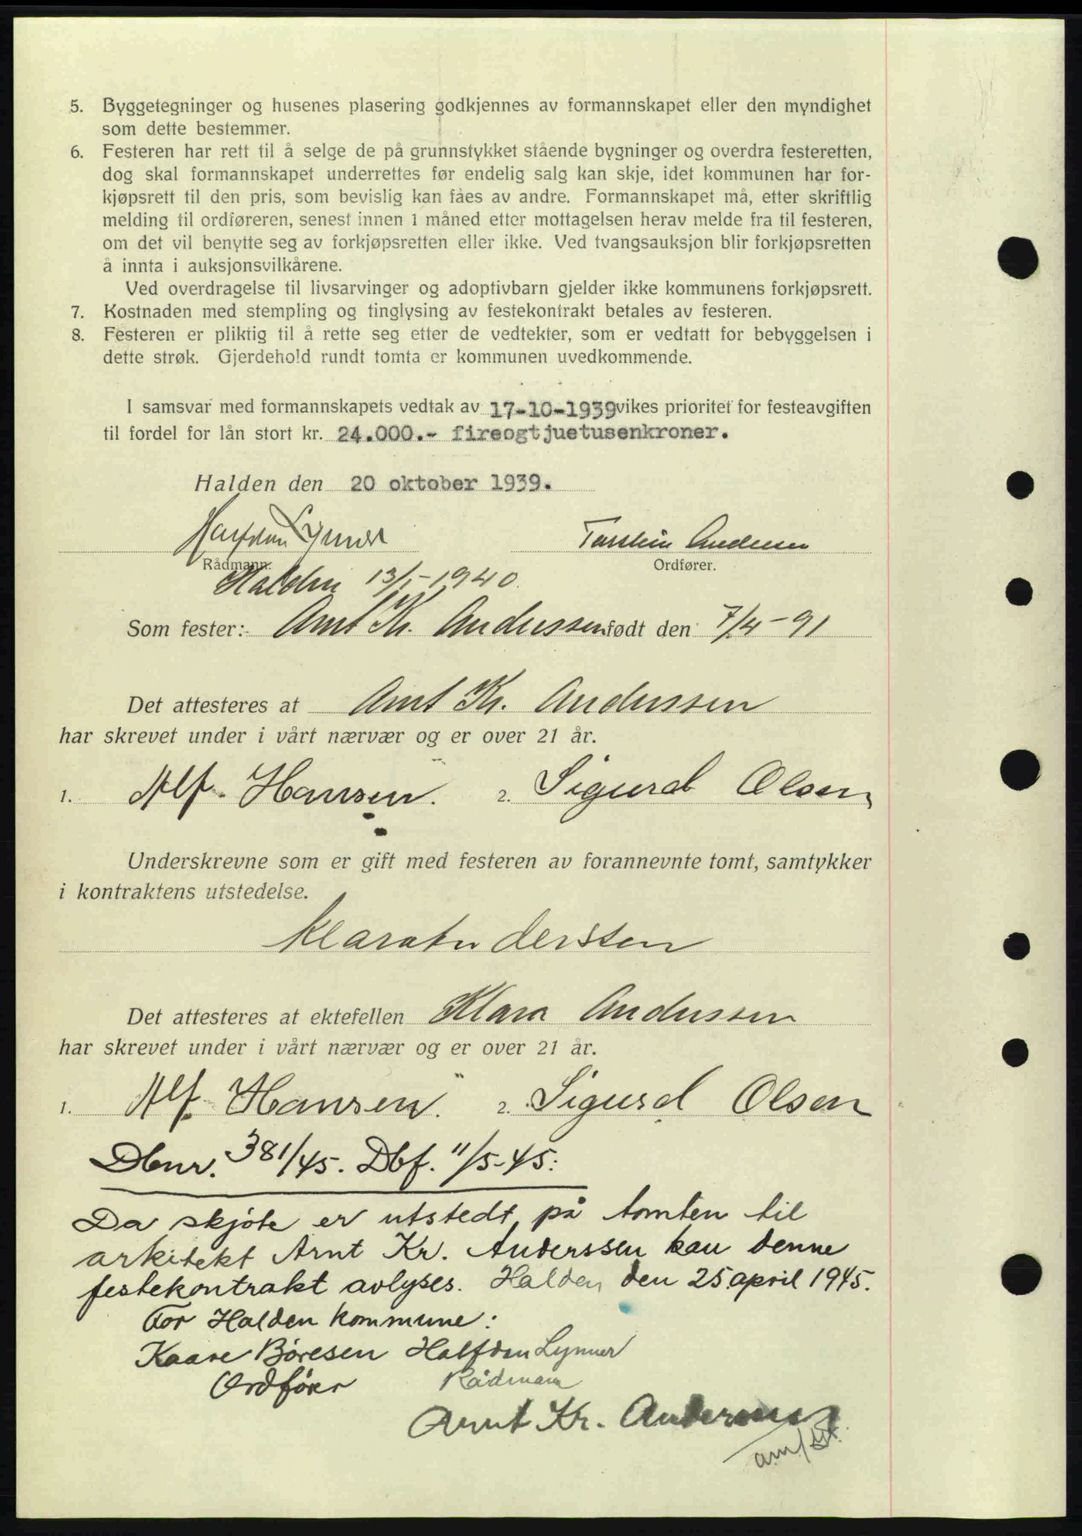 5. Byggetegninger og husenes plasering godkjennes av formannskapet eller den myndighet
som dette bestemmer.
6. Festeren har rett til å selge de på grunnstykket stående bygninger og overdra festeretten,
dog skal formannskapet underrettes før endelig salg kan skje, idet kommunen har for-
kjøpsrett til den pris, som bevislig kan fåes av andre. Formannskapet må, etter skriftlig
melding til ordføreren, senest innen 1 måned etter mottagelsen herav melde fra til festeren,
om det vil benytte seg av forkjøpsretten eller ikke. Ved tvangsauksjon blir forkjøpsretten
å innta i auksjonsvilkårene.
Ved overdragelse til livsarvinger og adoptivbarn gjelder ikke kommunens forkjøpsrett.
7. Kostnaden med stempling og tinglysing av festekontrakt betales av festeren.
8. Festeren er pliktig til å rette seg etter de vedtekter, som er vedtatt for bebyggelsen i
dette strøk. Gjerdehold rundt tomta er kommunen uvedkommende.
I samsvar med formannskapets vedtak av 17-10-1939 vikes prioritet for festeavgiften
til fordel for lån stort kr. 24.000.- fireogtjuetusenkroner.
Halden den 20 oktober 1939.
Halfdan Lynner Torstein Andersen
Rådmann. Ordfører.
Halden 13/1-1940
Som fester: Arnt Kr. Anderssen født den 7/4-91
Det attesteres at Arnt Kr. Anderssen
har skrevet under i vårt nærvær og er over 21 år.
1. Alf Hansen. 2. Sigurd Olsen
Underskrevne som er gift med festeren av forannevnte tomt, samtykker
i kontraktens utstedelse.
Klara Anderssen
Det attesteres at ektefellen Klara Anderssen
har skrevet under i vårt nærvær og er over 21 år.
1. Alf Hansen. " 2. Sigurd Olsen
Dbnr. 381/45. Dbf. 11/5-45.
Da skjøte er utstedt på tomten til
arkitekt Arnt Kr. Anderssen kan denne
festekontrakt avlyses. Halden den 25 april 1945.
For Halden kommune:
Kaare Børesen Halfdan Lynner
Ordfører Rådmann
Arnt Kr. Anderssen